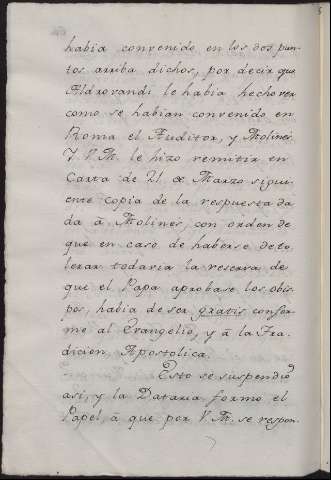 habia convenido en los dos pun-
tos arriba dichos, por decir que
Aldrovandi le habia hecho ver
como se habian convenido en
Roma el Auditor, y Molines
Y V.M. le hizo remitir en
Carta de 21 de Marzo sigui-
ente copia de la respuesta da
da â Molines, con orden de
que en caso de haberse de to-
lerar todavia la reserva de
que el Papa aprobase los obis
pos, habia de ser gratis confor
me al Evangelio, y â la Tra-
dicion Apostolica.
Esto se suspendio
asi, y la Dataria formo el
Papel, â que por V.M. se respon-